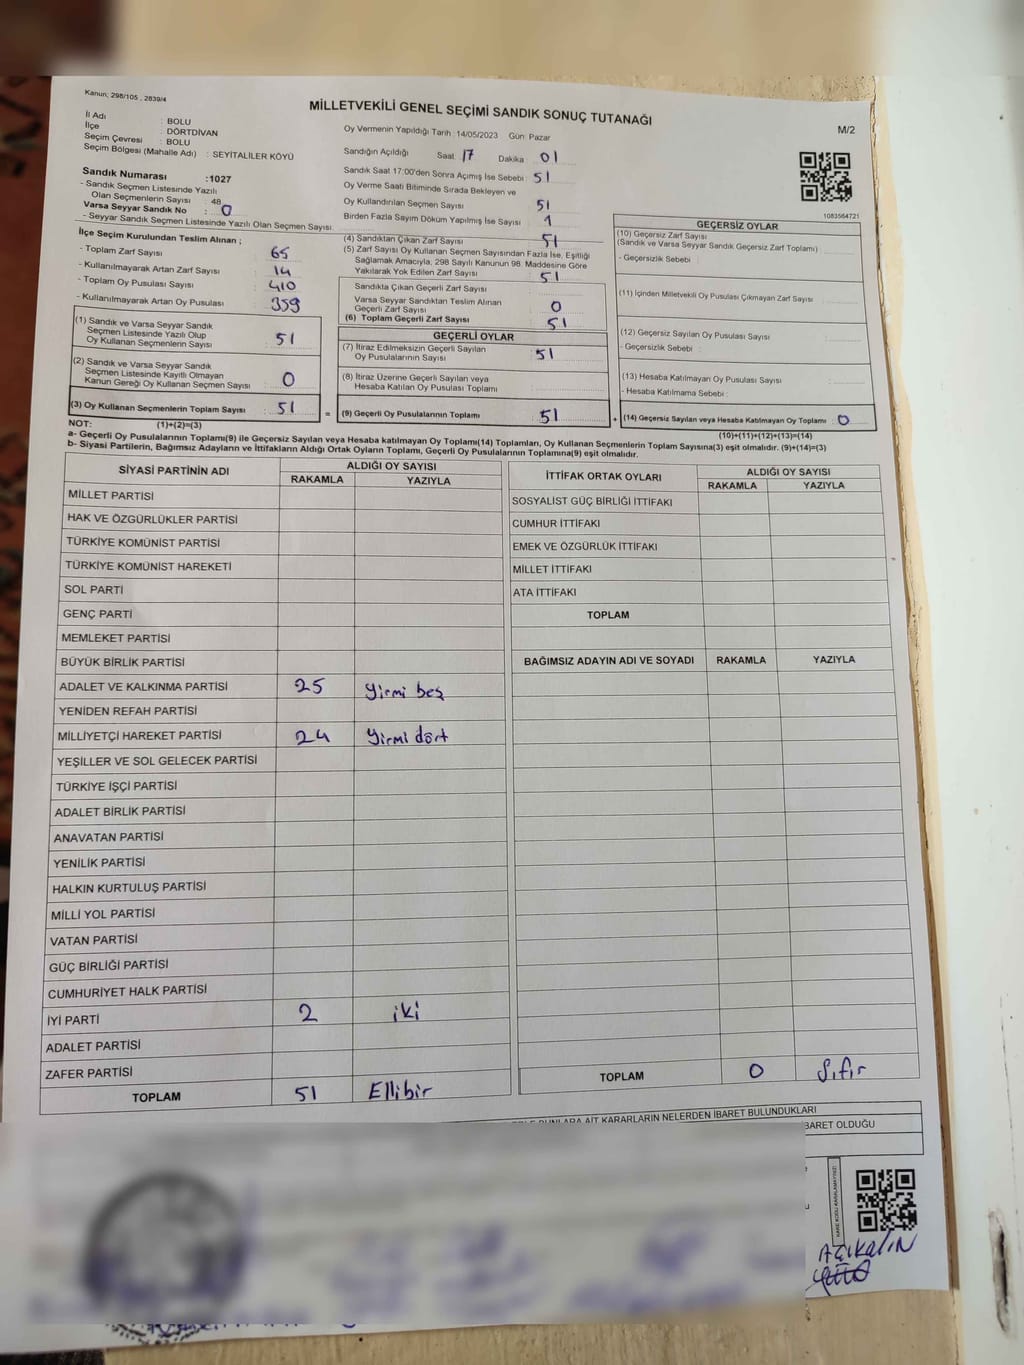 Kanun; 298/105 , 2839/4
MİLLETVEKİLİ GENEL SEÇİMİ SANDIK SONUÇ TUTANAĞI
M/2
İl Adı : BOLU
İlçe : DÖRTDİVAN
Seçim Çevresi : BOLU
Seçim Bölgesi (Mahalle Adı) : SEYİTALİLER KÖYÜ
Oy Vermenin Yapıldığı Tarih : 14/05/2023 Gün: Pazar
Sandığın Açıldığı Saat: 17 Dakika 01
Sandık Saat 17:00'den Sonra Açımış İse Sebebi : 51
Oy Verme Saati Bitiminde Sırada Bekleyen ve
Oy Kullandırılan Seçmen Sayısı 51
Birden Fazla Sayım Döküm Yapılmış İse Sayısı 1
1083564721
Sandık Numarası :1027
- Sandık Seçmen Listesinde Yazılı
Olan Seçmenlerin Sayısı : 48
Varsa Seyyar Sandık No : 0
- Seyyar Sandık Seçmen Listesinde Yazılı Olan Seçmen Sayısı:
İlçe Seçim Kurulundan Teslim Alınan ;
- Toplam Zarf Sayısı 65
- Kullanılmayarak Artan Zarf Sayısı 14
- Toplam Oy Pusulası Sayısı 410
- Kullanılmayarak Artan Oy Pusulası 359
(1) Sandık ve Varsa Seyyar Sandık
Seçmen Listesinde Yazılı Olup
Oy Kullanan Seçmenlerin Sayısı 51
(2) Sandık ve Varsa Seyyar Sandık
Seçmen Listesinde Kayıtlı Olmayan
Kanun Gereği Oy Kullanan Seçmen Sayısı 0
(3) Oy Kullanan Seçmenlerin Toplam Sayısı : 51 =
(4) Sandıktan Çıkan Zarf Sayısı 51
(5) Zarf Sayısı Oy Kullanan Seçmen Sayısından Fazla İse, Eşitliği
Sağlamak Amacıyla, 298 Sayılı Kanunun 98. Maddesine Göre
Yakılarak Yok Edilen Zarf Sayısı : 51
Sandıkla Çıkan Geçerli Zarf Sayısı
Varsa Seyyar Sandıktan Teslim Alınan
Geçerli Zarf Sayısı 0
(6) Toplam Geçerli Zarf Sayısı 51
GEÇERLİ OYLAR
(7) İtiraz Edilmeksizin Geçerli Sayılan
Oy Pusulalarının Sayısı : 51
(8) İtiraz Üzerine Geçerli Sayılan veya
Hesaba Katılan Oy Pusulası Toplamı
(9) Geçerli Oy Pusulalarının Toplamı 51 +
GEÇERSİZ OYLAR
(10) Geçersiz Zarf Sayısı
(Sandık ve Varsa Seyyar Sandık Geçersiz Zarf Toplamı)
- Geçersizlik Sebebi :
(11) İçinden Milletvekili Oy Pusulası Çıkmayan Zarf Sayısı
(12) Geçersiz Sayılan Oy Pusulası Sayısı
- Geçersizlik Sebebi :
(13) Hesaba Katılmayan Oy Pusulası Sayısı
- Hesaba Katılmama Sebebi :
(14) Geçersiz Sayılan veya Hesaba Katılmayan Oy Toplamı : 0
NOT: (1)+(2)=(3) (10)+(11)+(12)+(13)=(14)
a- Geçerli Oy Pusulalarının Toplamı(9) ile Geçersiz Sayılan veya Hesaba katılmayan Oy Toplamı(14) Toplamları, Oy Kullanan Seçmenlerin Toplam Sayısına(3) eşit olmalıdır. (9)+(14)=(3)
b- Siyasi Partilerin, Bağımsız Adayların ve İttifakların Aldığı Ortak Oyların Toplamı, Geçerli Oy Pusulalarının Toplamına(9) eşit olmalıdır.
SİYASİ PARTİNİN ADI ALDIĞI OY SAYISI
RAKAMLA YAZIYLA
MİLLET PARTİSİ
HAK VE ÖZGÜRLÜKLER PARTİSİ
TÜRKİYE KOMÜNİST PARTİSİ
TÜRKİYE KOMÜNİST HAREKETİ
SOL PARTİ
GENÇ PARTİ
MEMLEKET PARTİSİ
BÜYÜK BİRLİK PARTİSİ
ADALET VE KALKINMA PARTİSİ 25 Yirmi beş
YENİDEN REFAH PARTİSİ
MİLLİYETÇİ HAREKET PARTİSİ 24 Yirmi dört
YEŞİLLER VE SOL GELECEK PARTİSİ
TÜRKİYE İŞÇİ PARTİSİ
ADALET BİRLİK PARTİSİ
ANAVATAN PARTİSİ
YENİLİK PARTİSİ
HALKIN KURTULUŞ PARTİSİ
MİLLİ YOL PARTİSİ
VATAN PARTİSİ
GÜÇ BİRLİĞİ PARTİSİ
CUMHURİYET HALK PARTİSİ
İYİ PARTİ 2 iki
ADALET PARTİSİ
ZAFER PARTİSİ
TOPLAM 51 Ellibir
İTTİFAK ORTAK OYLARI ALDIĞI OY SAYISI
RAKAMLA YAZIYLA
SOSYALİST GÜÇ BİRLİĞİ İTTİFAKI
CUMHUR İTTİFAKI
EMEK VE ÖZGÜRLÜK İTTİFAKI
MİLLET İTTİFAKI
ATA İTTİFAKI
TOPLAM
BAĞIMSIZ ADAYIN ADI VE SOYADI RAKAMLA YAZIYLA
TOPLAM 0 Sıfır
AİT KARARLARIN NELERDEN İBARET BULUNDUKLARI
BARET OLDUĞU
AÇıKalıN